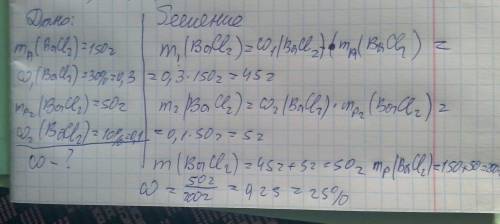 Дано:
m р₁(BaCl₂)=150г
ω₁(BaCl₂)=30%=0,3
m р₂(BaCl₂)=50г
ω₂(BaCl₂)=10%=0,1
ω - ?
Решение
m₁(BaCl₂)=ω₁(BaCl₂)·m р₁(BaCl₂) =
= 0,3·150г=45г
m₂(BaCl₂)=ω₂(BaCl₂)·m р₂(BaCl₂)=
=0,1·50г=5г
m(BaCl₂)=45г+5г=50г m р(BaCl₂)=150+50=200г
ω = 50г/200г = 0,25 = 25%